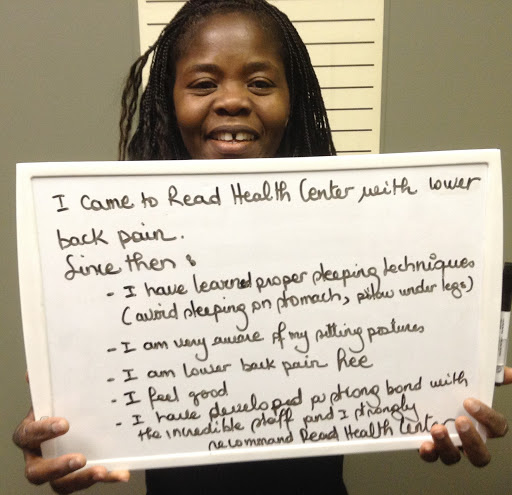 I came to Read Health Center with lower
back pain.
Since then :
- I have learned proper sleeping techniques
(avoid sleeping on stomach, pillow under legs)
- I am very aware of my sitting postures
- I am lower back pain free
- I feel good
- I have developed a strong bond with
the incredible staff and I strongly
recommand Read Health Center